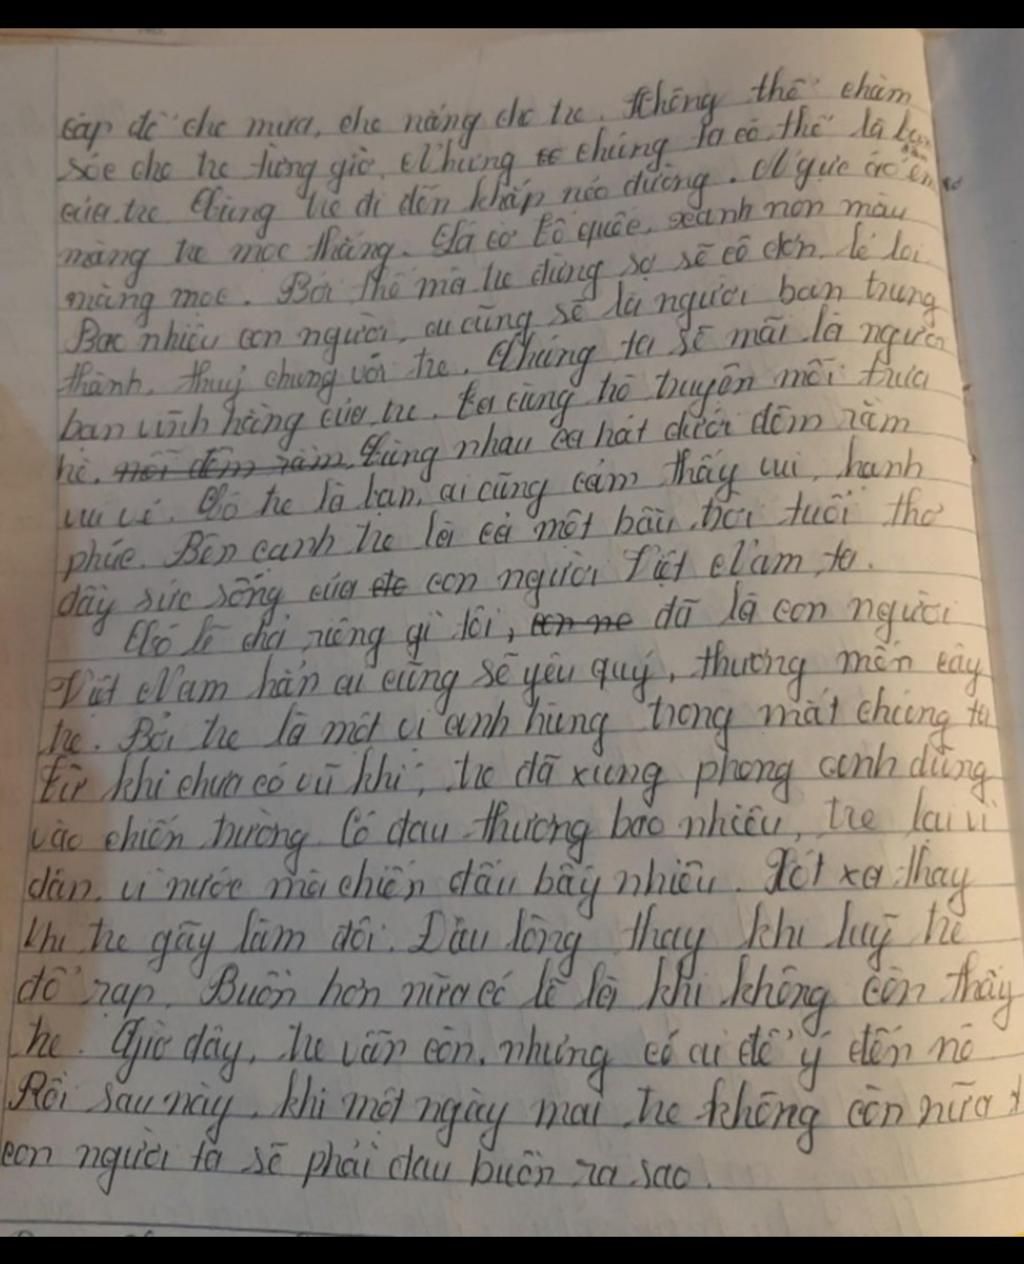 cáp để che mưa, che nắng cho tre. Không thể chăm
sóc cho tre từng giờ. Nhưng chúng ta có thể là bạn
của tre. Cùng tre đi đến khắp nẻo đường. Ngực
măng tre mọc thẳng. Lá cờ Tổ quốc, xanh non màu
măng mọc. Bởi thế mà tre đừng sợ sẽ cô đơn, lẻ loi.
Bao nhiêu con người, ai cũng sẽ là người bạn trung
thành, thuỷ chung với tre. Chúng ta sẽ mãi là người
bạn vĩnh hằng của tre. Ta cùng trò truyện mỗi trưa
hè. Cùng nhau ca hát dưới đêm rằm
vui vẻ. Có tre là bạn, ai cũng cảm thấy vui, hạnh
phúc. Bên cạnh tre là cả một bầu trời tuổi thơ
đầy sức sống của con người Việt Nam ta.
Có lẽ chả riêng gì tôi, đã là con người
Việt Nam hẳn ai cũng sẽ yêu quý, thương mến cây
tre. Bởi tre là một vị anh hùng trong mắt chúng ta
từ khi chưa có vũ khí, tre đã xung phong anh dũng
vào chiến trường. Có đau thương bao nhiêu, tre lại vì
dân, vì nước mà chiến đấu bấy nhiêu. Xót xa thay
khi tre gãy làm đôi. Đau lòng thay khi luỹ tre
đổ rạp. Buồn hơn nữa có lẽ là khi không còn thấy
tre. Giờ đây, tre vẫn còn, nhưng có ai để ý đến nó
Rồi sau này, khi một ngày mai tre không còn nữa
con người ta sẽ phải đau buồn ra sao.